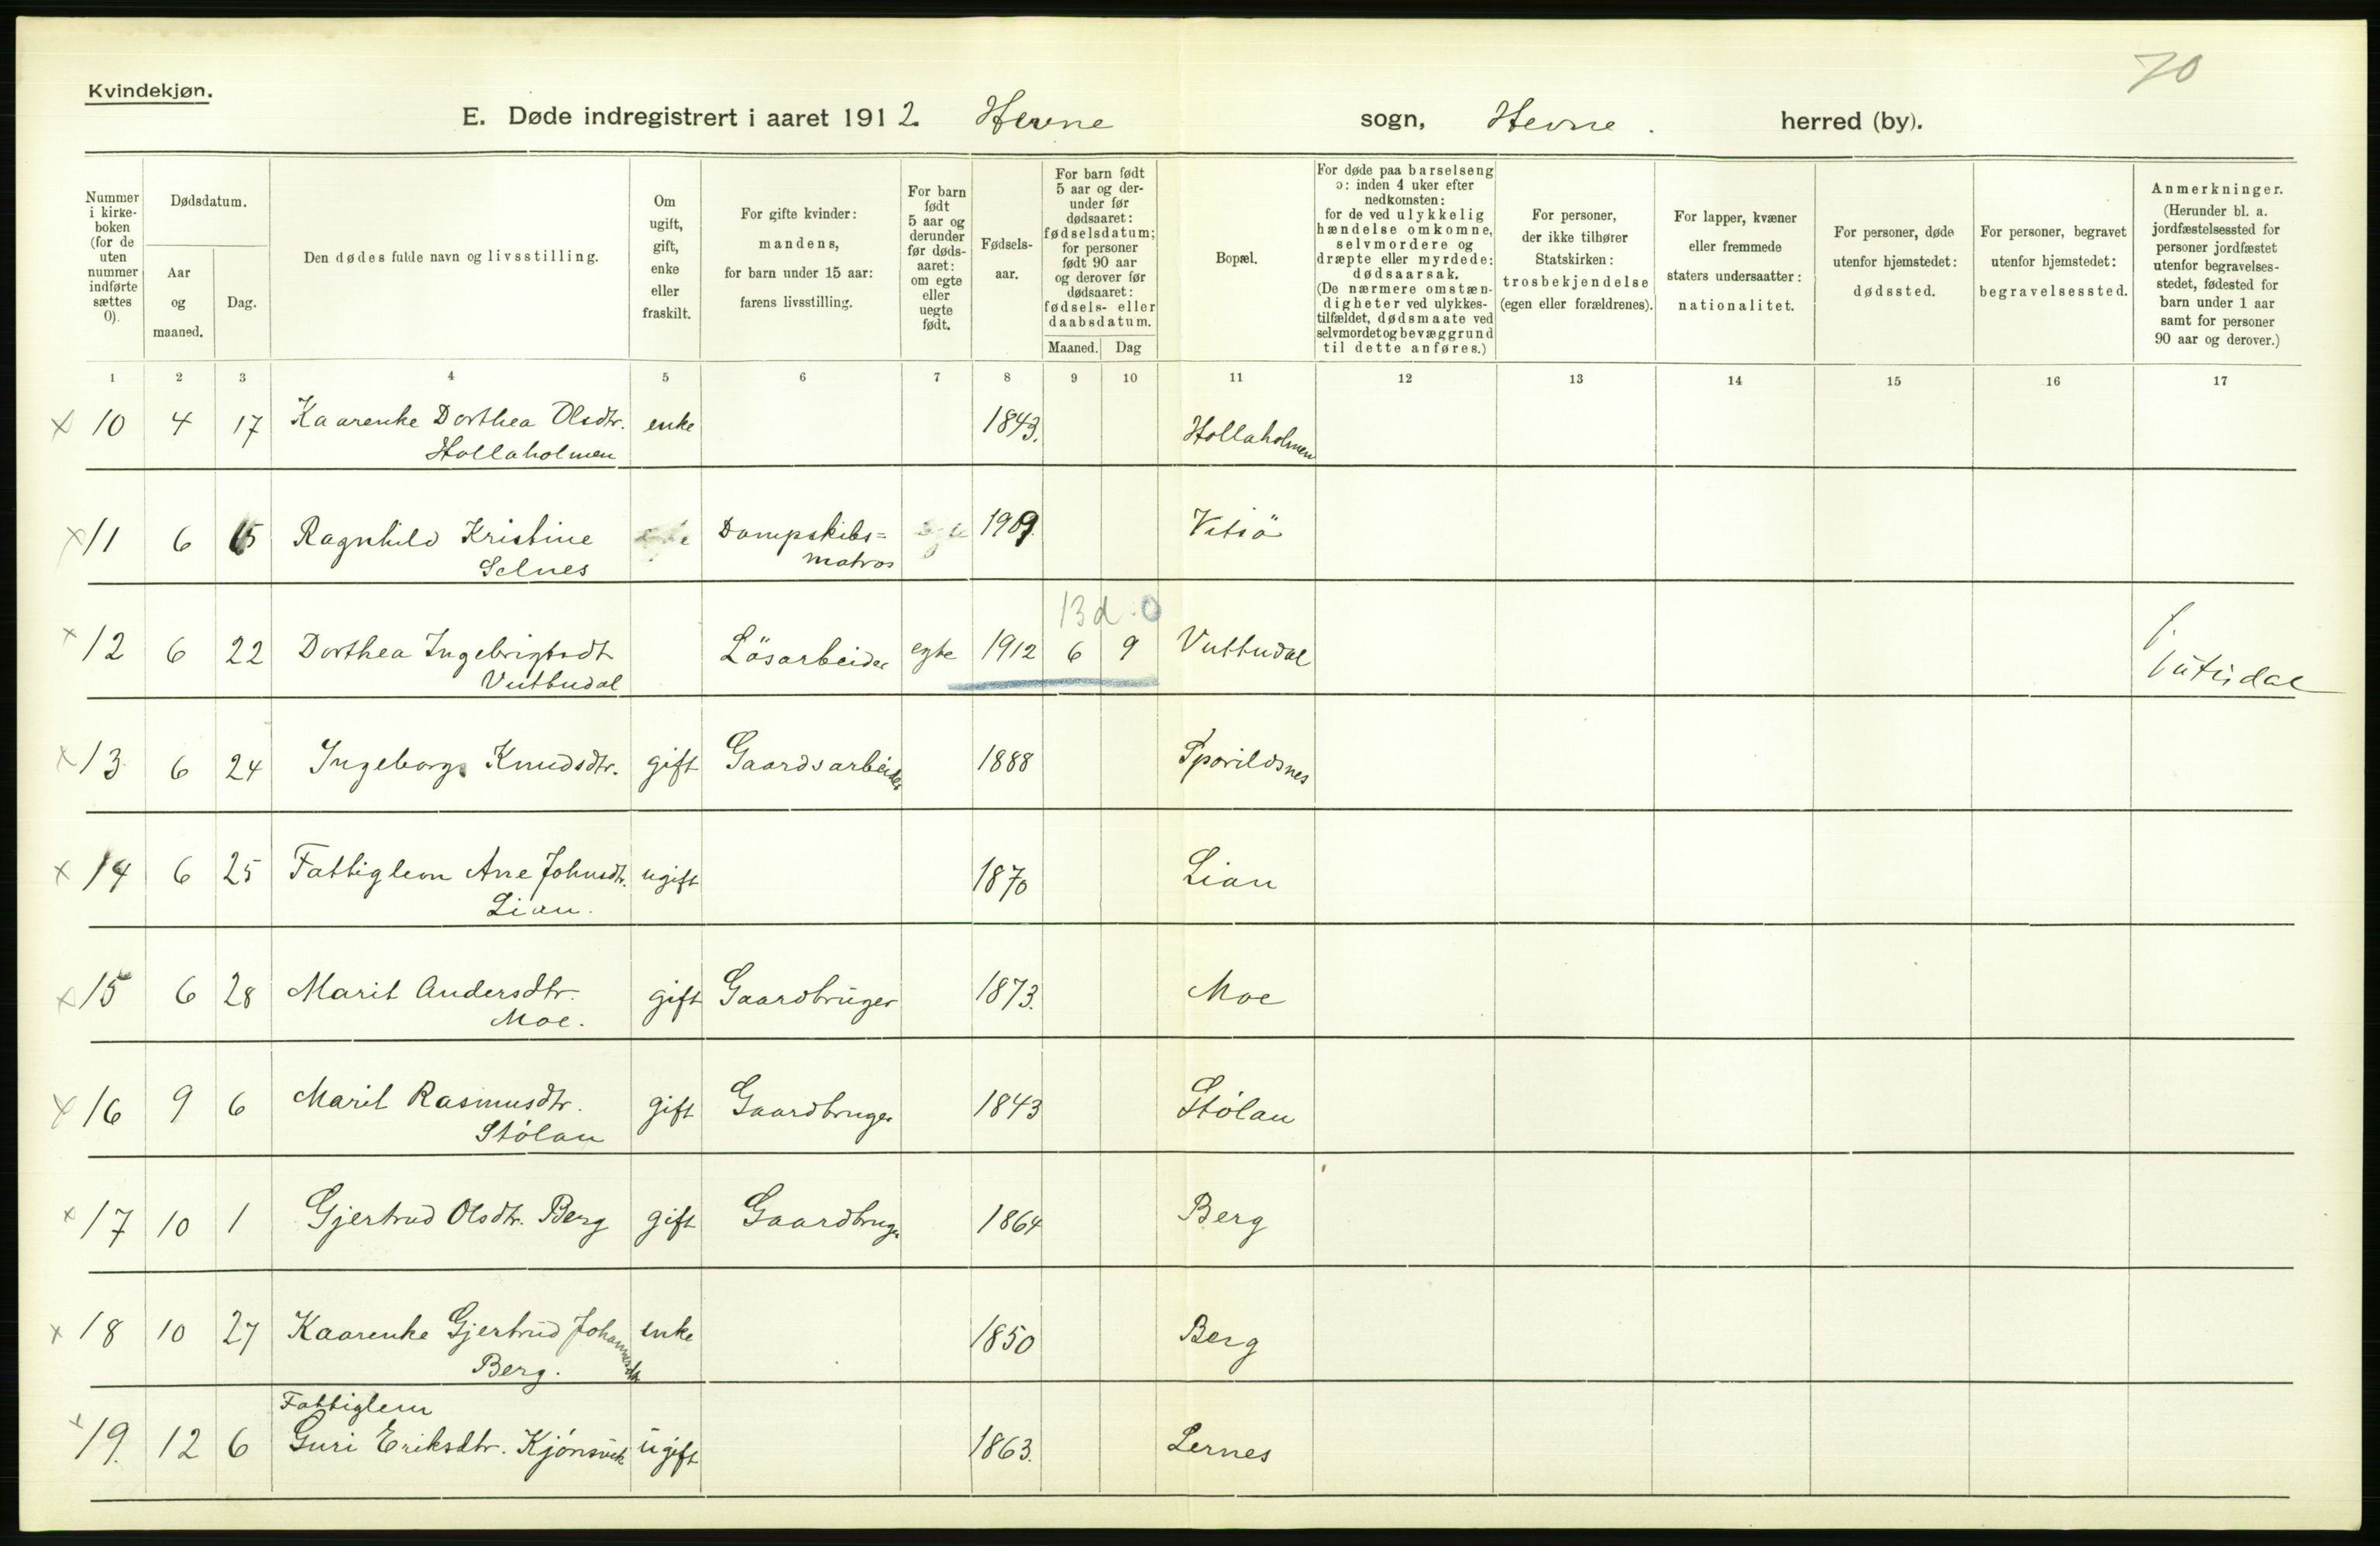 70
Kvindekjøn.
E. Døde indregistrert i aaret 1912. Hevne sogn, Hevne. herred (by).
Nummer i kirke-boken (for de uten nummer indførte sættes 0).
Dødsdatum.
Aar og maaned.
Dag.
Den dødes fulde navn og livsstilling.
Om ugift, gift, enke eller fraskilt.
For gifte kvinder: mandens, for barn under 15 aar: farens livsstilling.
For barn født 5 aar og derunder før døds-aaret: om egte eller uegte født.
Fødsels-aar.
For barn født 5 aar og der-under før dødsaaret: fødselsdatum; for personer født 90 aar og derover før dødsaaret: fødsels- eller daabsdatum.
Maaned. Dag
Bopæl.
For døde paa barselseng ɔ: inden 4 uker efter nedkomsten: for de ved ulykkelig hændelse omkomne, selvmordere og dræpte eller myrdede: dødsaarsak. (De nærmere omstæn-digheter ved ulykkes-tilfældet, dødsmaate ved selvmordet og bevæggrund til dette anføres.)
For personer, der ikke tilhører Statskirken: trosbekjendelse (egen eller forældrenes).
For lapper, kvæner eller fremmede staters undersaatter: nationalitet.
For personer, døde utenfor hjemstedet: dødssted.
For personer, begravet utenfor hjemstedet: begravelsessted.
Anmerkninger. (Herunder bl. a. jordfæstelsessted for personer jordfæstet utenfor begravelses-stedet, fødested for barn under 1 aar samt for personer 90 aar og derover.)
1 2 3 4 5 6 7 8 9 10 11 12 13 14 15 16 17
x 10 4 17 Kaarenke Dorthea Olsdtr. enke 1843. Hollaholmen
Hollaholmen
x 11 6 15 Ragnhild Kristine Dampskibs= egte 1909 Vitsö
Selnes matros
13 d. 0
x 12 6 22 Dorthea Ingebrigtsdt Lösarbeider egte 1912 6 9 Vuttudal
Vuttudal
x 13 6 24 Ingeborg Knudsdtr. gift Gaardsarbeider 1888 Sporildsnes
x 14 6 25 Fattiglem Ane Johnsdtr. ugift 1870 Lian
Lian.
x 15 6 28 Marit Andersdtr. gift Gaardbruger 1873. Moe
Moe.
x 16 9 6 Marit Rasmusdtr. gift Gaardbruger 1843 Stólan
Stólan
x 17 10 1 Gjertrud Olsdtr. Berg gift Gaardbruger 1864 Berg
x 18 10 27 Kaarenke Gjertrud Johannesdtr enke 1850 Berg
Berg.
Fattiglem
x 19. 12 6 Guri Eriksdtr. Kjónsvik ugift 1863. Lernes